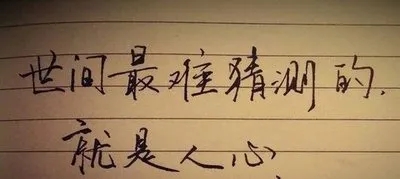 世间最难猜测的.
就是人心